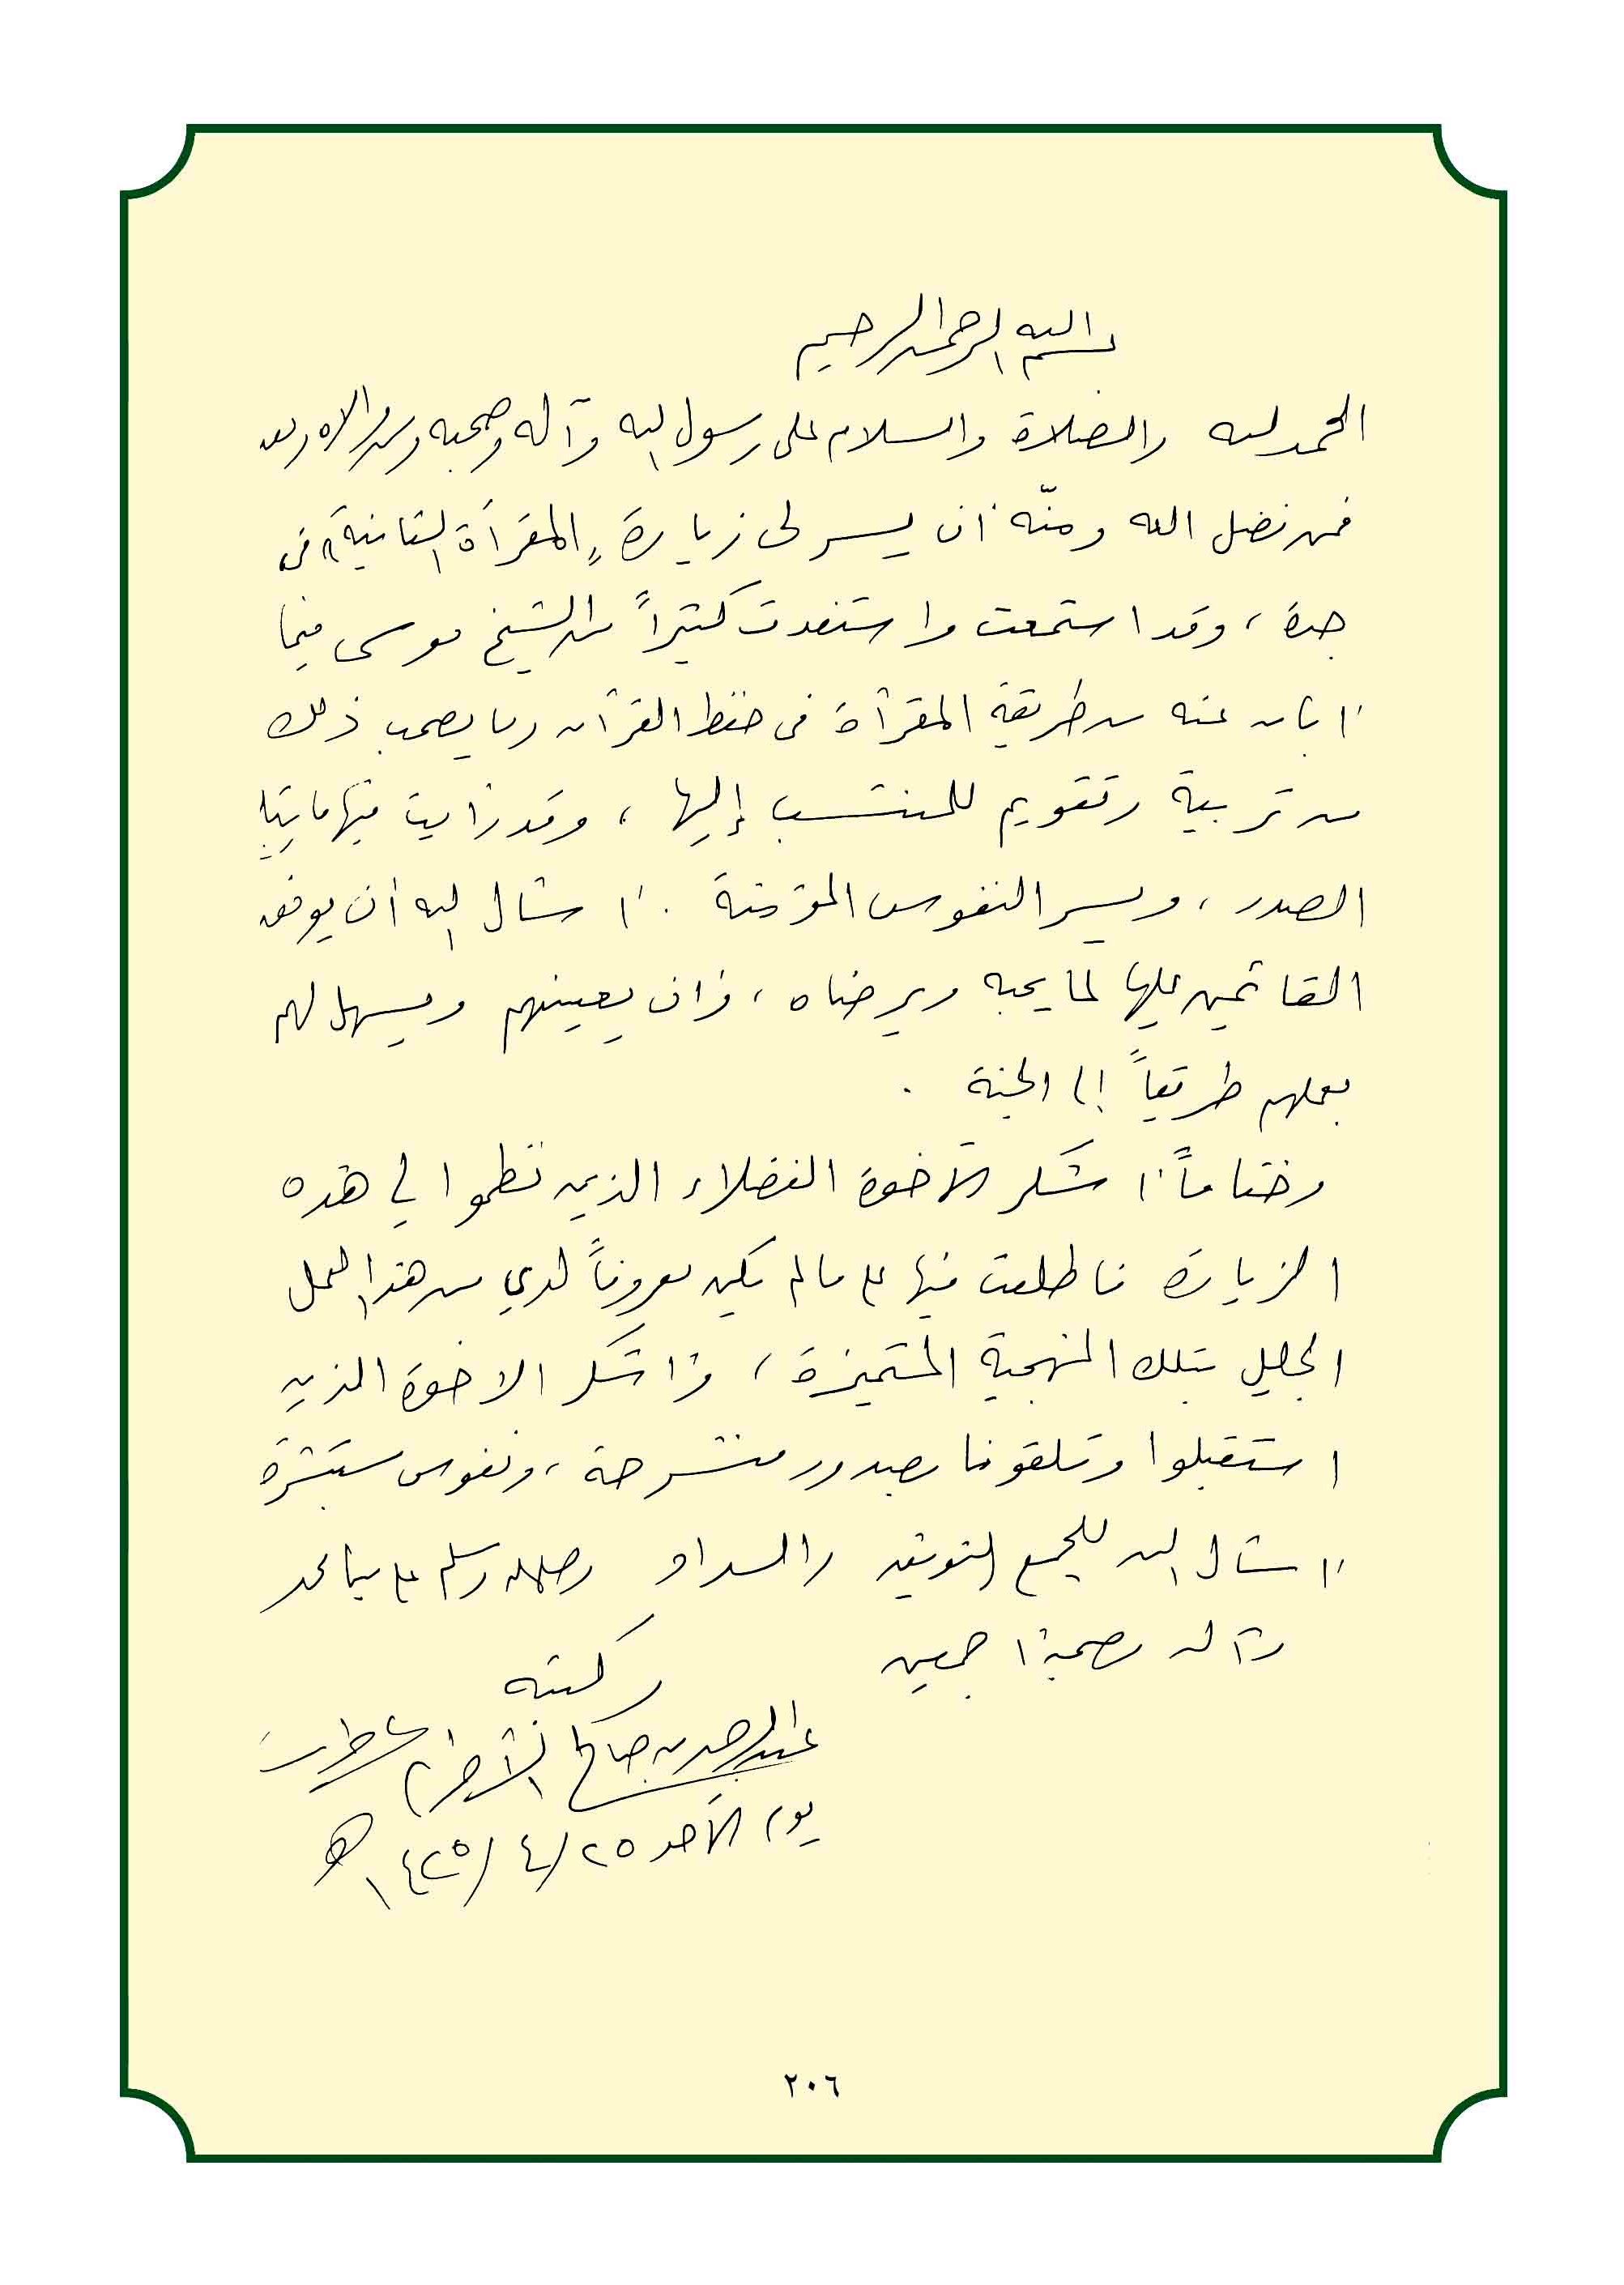 بسم الله الرحمن الرحيم
الحمد لله والصلاة والسلام على رسول الله وآله وصحبه ومن والاه وبعد
فمن فضل الله ومنّه أن يسر لى زيارة "المقرأة الثانية" فى
جدة، وقد استمعت واستفدت كثيراً من الشيخ موسى فيما
أبان عنه من طريقة المقرأة فى حفظ القرآن وما يصحب ذلك
من تربية وتقويم للمنتسب إليها، وقد رأيت فيها ما يثلج
الصدر، ويسر النفوس المؤمنة. أسأل الله أن يوفق
القائمين عليها لما يحبه ويرضاه، وأن يعينهم ويسهل لهم
بعملهم طريقاً إلى الجنة.
وختاماً أشكر الأخوة الفضلاء الذين نظموا لي هذه
الزيارة فاطلعت فيها على ما لم يكن معروفاً لدي من هذا العمل
الجليل بتلك المنهجية المتميزة، وأشكر الاخوة الذين
استقبلوا وتلقونا بصدور منشرحة، ونفوس مستبشرة
أسأل الله للجميع التوفيق والسداد وصلى الله وسلم على نبينا محمد
وآله وصحبه أجمعين
وكتبه
عبد الرحمن بن صالح
يوم الأحد ٢٥/٤/١٤٢٥هـ
٢٠٦